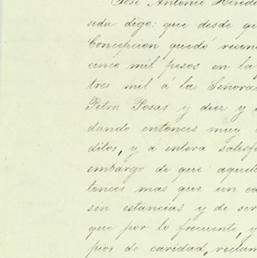 José Antonio Hered
seda digo: que desde qu
Concepcion quedó recono
cinco mil pesos en la
tres mil á la Señora
Petra Posas y diez y
dando entonces muy
ditos, y a entera satisf
embargo de que aquel
tonces mas que un ca
sin estancias y de ser
que por lo frecuente, y
pior de caridad, reclam